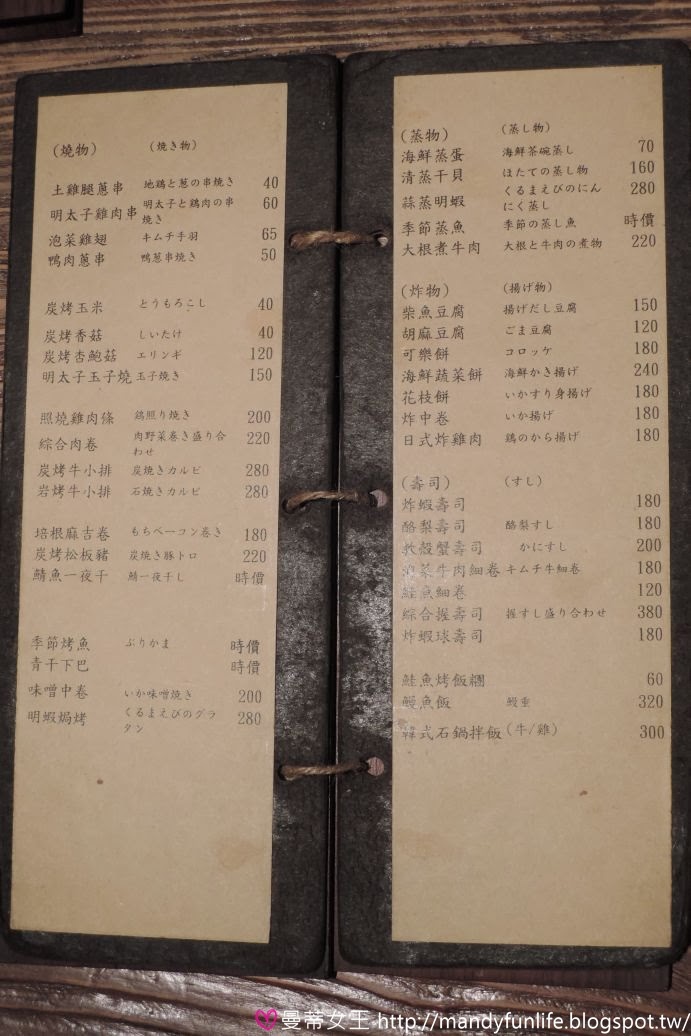 (燒物) (焼き物)
土雞腿蔥串 地鶏と葱の串焼き 40
明太子雞肉串 明太子と鶏肉の串焼き 60
泡菜雞翅 キムチ手羽 65
鴨肉蔥串 鴨葱串焼き 50
炭烤玉米 とうもろこし 40
炭烤香菇 しいたけ 40
炭烤杏鮑菇 エリンギ 120
明太子玉子燒 玉子焼き 150
照燒雞肉條 鶏照り焼き 200
綜合肉卷 肉野菜巻き盛り合わせ 220
炭烤牛小排 炭焼きカルビ 280
岩烤牛小排 石焼きカルビ 280
培根麻吉卷 もちベーコン巻き 180
炭烤松板豬 炭焼き豚トロ 220
鯖魚一夜干 鯖一夜干し 時價
季節烤魚 ぶりかま 時價
青干下巴 時價
味噌中卷 いか味噌焼き 200
明蝦焗烤 くるまえびのグラタン 280
(蒸物) (蒸し物)
海鮮蒸蛋 海鮮茶碗蒸し 70
清蒸干貝 ほたての蒸し物 160
蒜蒸明蝦 くるまえびのにんにく蒸し 280
季節蒸魚 季節の蒸し魚 時價
大根煮牛肉 大根と牛肉の煮物 220
(炸物) (揚げ物)
柴魚豆腐 揚げだし豆腐 150
胡麻豆腐 ごま豆腐 120
可樂餅 コロッケ 180
海鮮蔬菜餅 海鮮かき揚げ 240
花枝餅 いかすり身揚げ 180
炸中卷 いか揚げ 180
日式炸雞肉 鶏のから揚げ 180
(壽司) (すし)
炸蝦壽司 180
酪梨壽司 酪梨すし 180
軟殼蟹壽司 かにすし 200
泡菜牛肉細卷 キムチ牛細卷 180
鮭魚細卷 120
綜合握壽司 握すし盛り合わせ 380
炸蝦球壽司 180
鮭魚烤飯糰 60
鰻魚飯 鰻重 320
韓式石鍋拌飯 (牛/雞) 300
曼蒂女王 http://mandyfunlife.blogspot.tw/